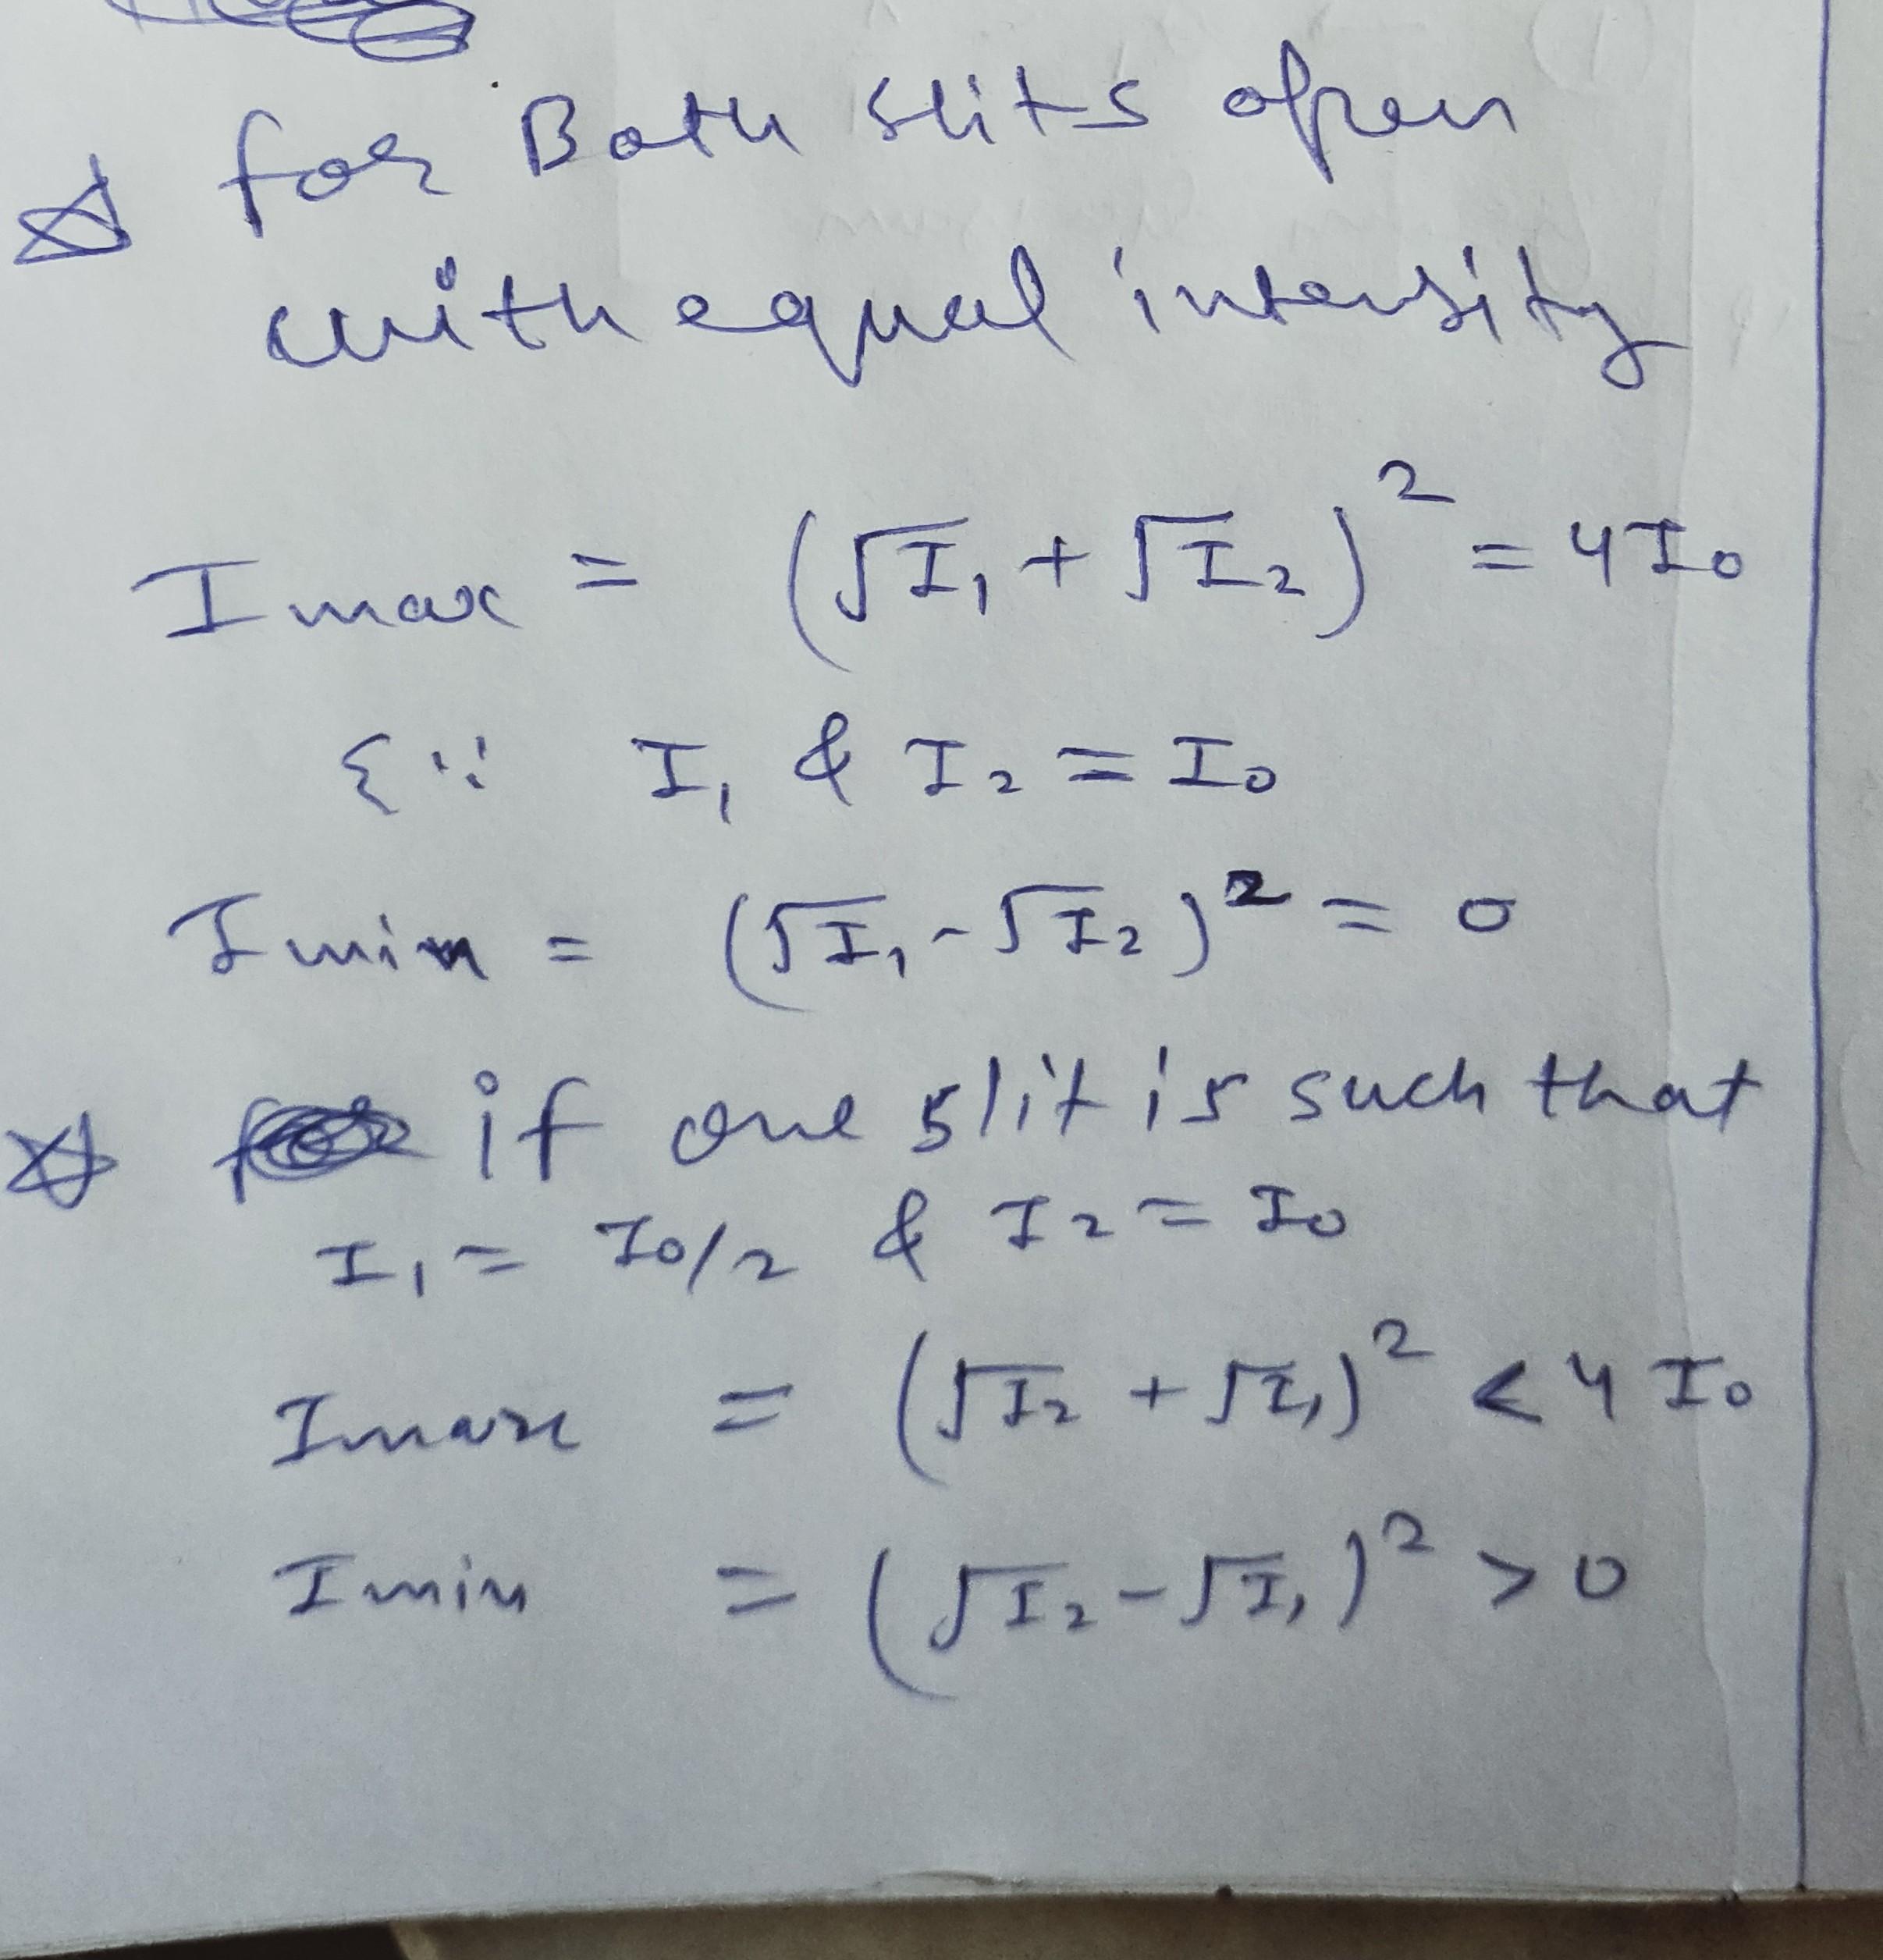 for Both slits open
with equal intensity
I max = (√I₁ + √I₂)² = 4I₀
{ ∵ I₁ & I₂ = I₀
I min = (√I₁ - √I₂)² = 0
if one slit is such that
I₁ = I₀/2 & I₂ = I₀
Imax = (√I₂ + √I₁)² < 4 I₀
Imin = (√I₂ - √I₁)² > 0